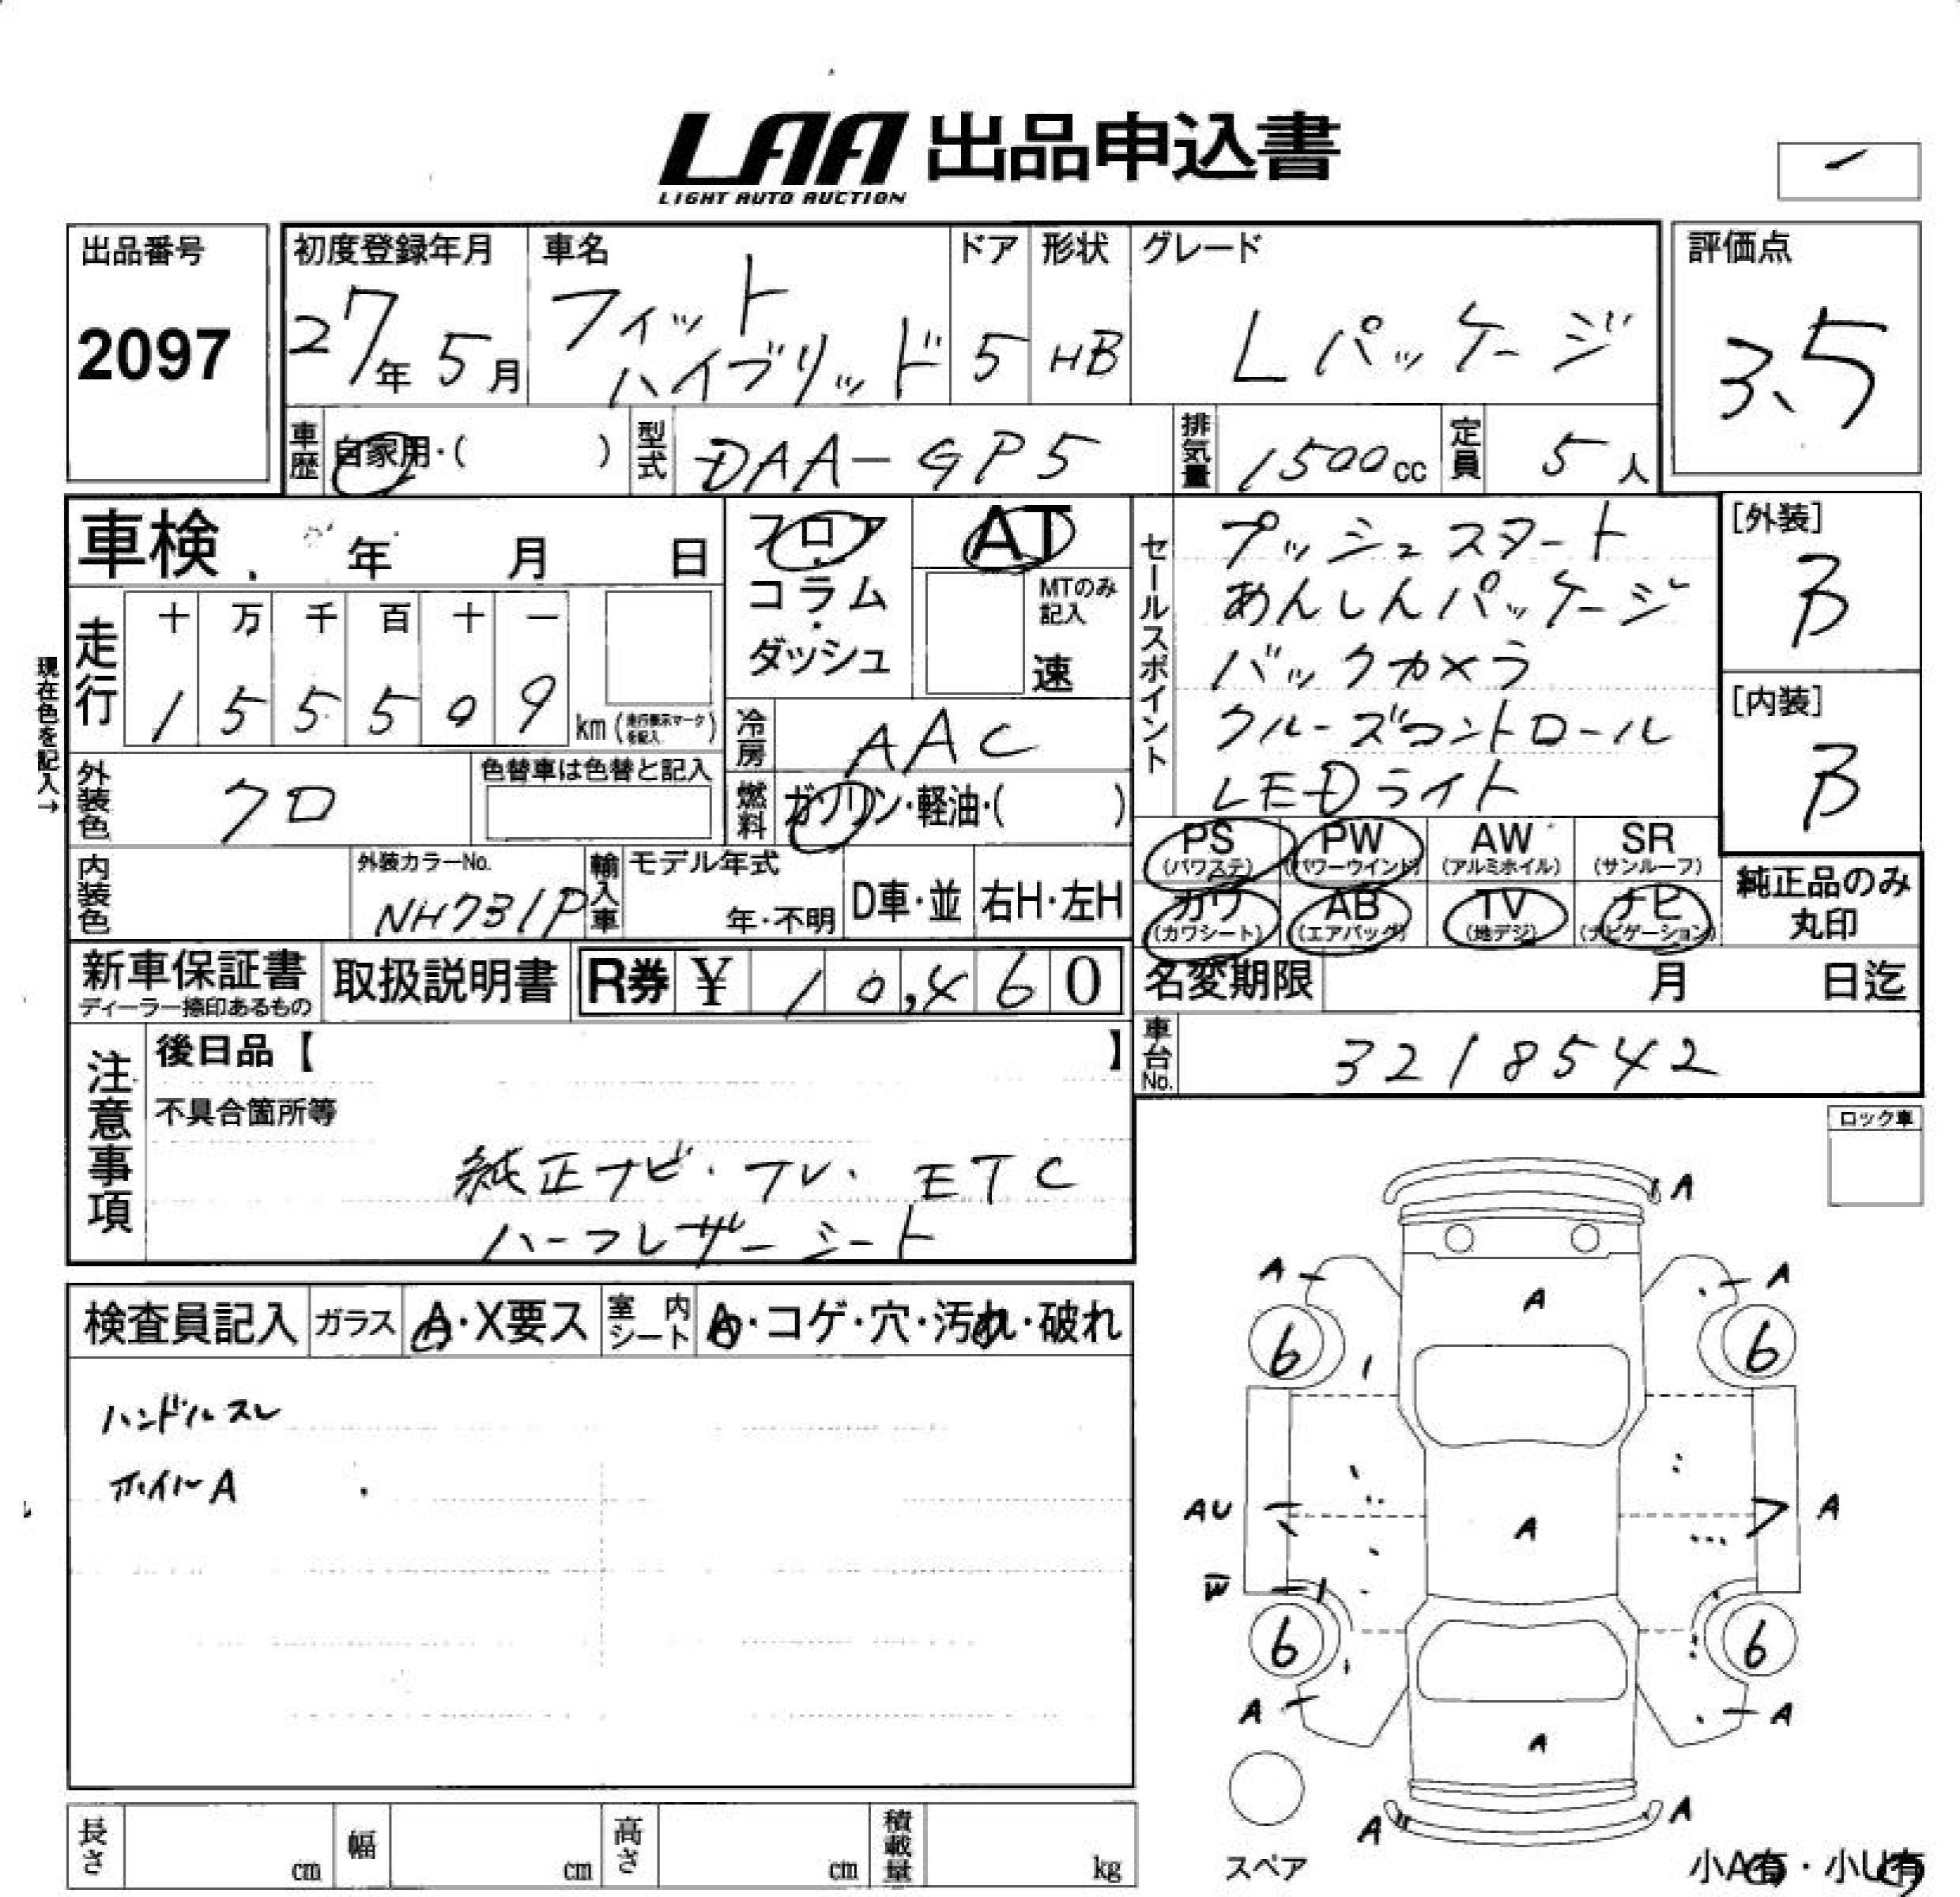 LAA 出品申込書
LIGHT AUTO AUCTION
出品番号
2097
初度登録年月
27年 5月
車名
フィット
ハイブリッド
ドア
5
形状
HB
グレード
Lパッケージ
評価点
3.5
車歴
自家用・( )
型式
DAA-GP5
排気量
1500cc
定員
5人
車検 年 月 日
走行
十 万 千 百 十 一
1 5 5 5 0 9 km (走行表示マークを記入)
現在色を記入→
外装色
クロ
色替車は色替と記入
内装色
外装カラーNo.
NH731P
フロア・
コラム・
ダッシュ
AT
MTのみ
記入
速
冷房
AAC
燃料
ガソリン・軽油・( )
輸入車
モデル年式
年・不明
D車・並
右H・左H
セールスポイント
プッシュスタート
あんしんパッケージ
バックカメラ
クルーズコントロール
LEDライト
[外装]
B
[内装]
B
PS (パワステ)
PW (パワーウインド)
AW (アルミホイル)
SR (サンルーフ)
カワ (カワシート)
AB (エアバッグ)
TV (地デジ)
ナビ (ナビゲーション)
純正品のみ
丸印
新車保証書
ディーラー捺印あるもの
取扱説明書
R券 ¥ 10,460
名変期限 月 日迄
車台No.
3218542
注意事項
後日品【 】
不具合箇所等
純正ナビ・TV・ETC
ハーフレザーシート
ロック車
検査員記入
ガラス
A・X要ス
室内シート
A・コゲ・穴・汚れ・破れ
ハンドルスレ
ホイルA
A
A A
A
6 6
AU A A
W
6 6
A A
A
A A
スペア
小A有・小U有
長さ cm
幅 cm
高さ cm
積載量 kg